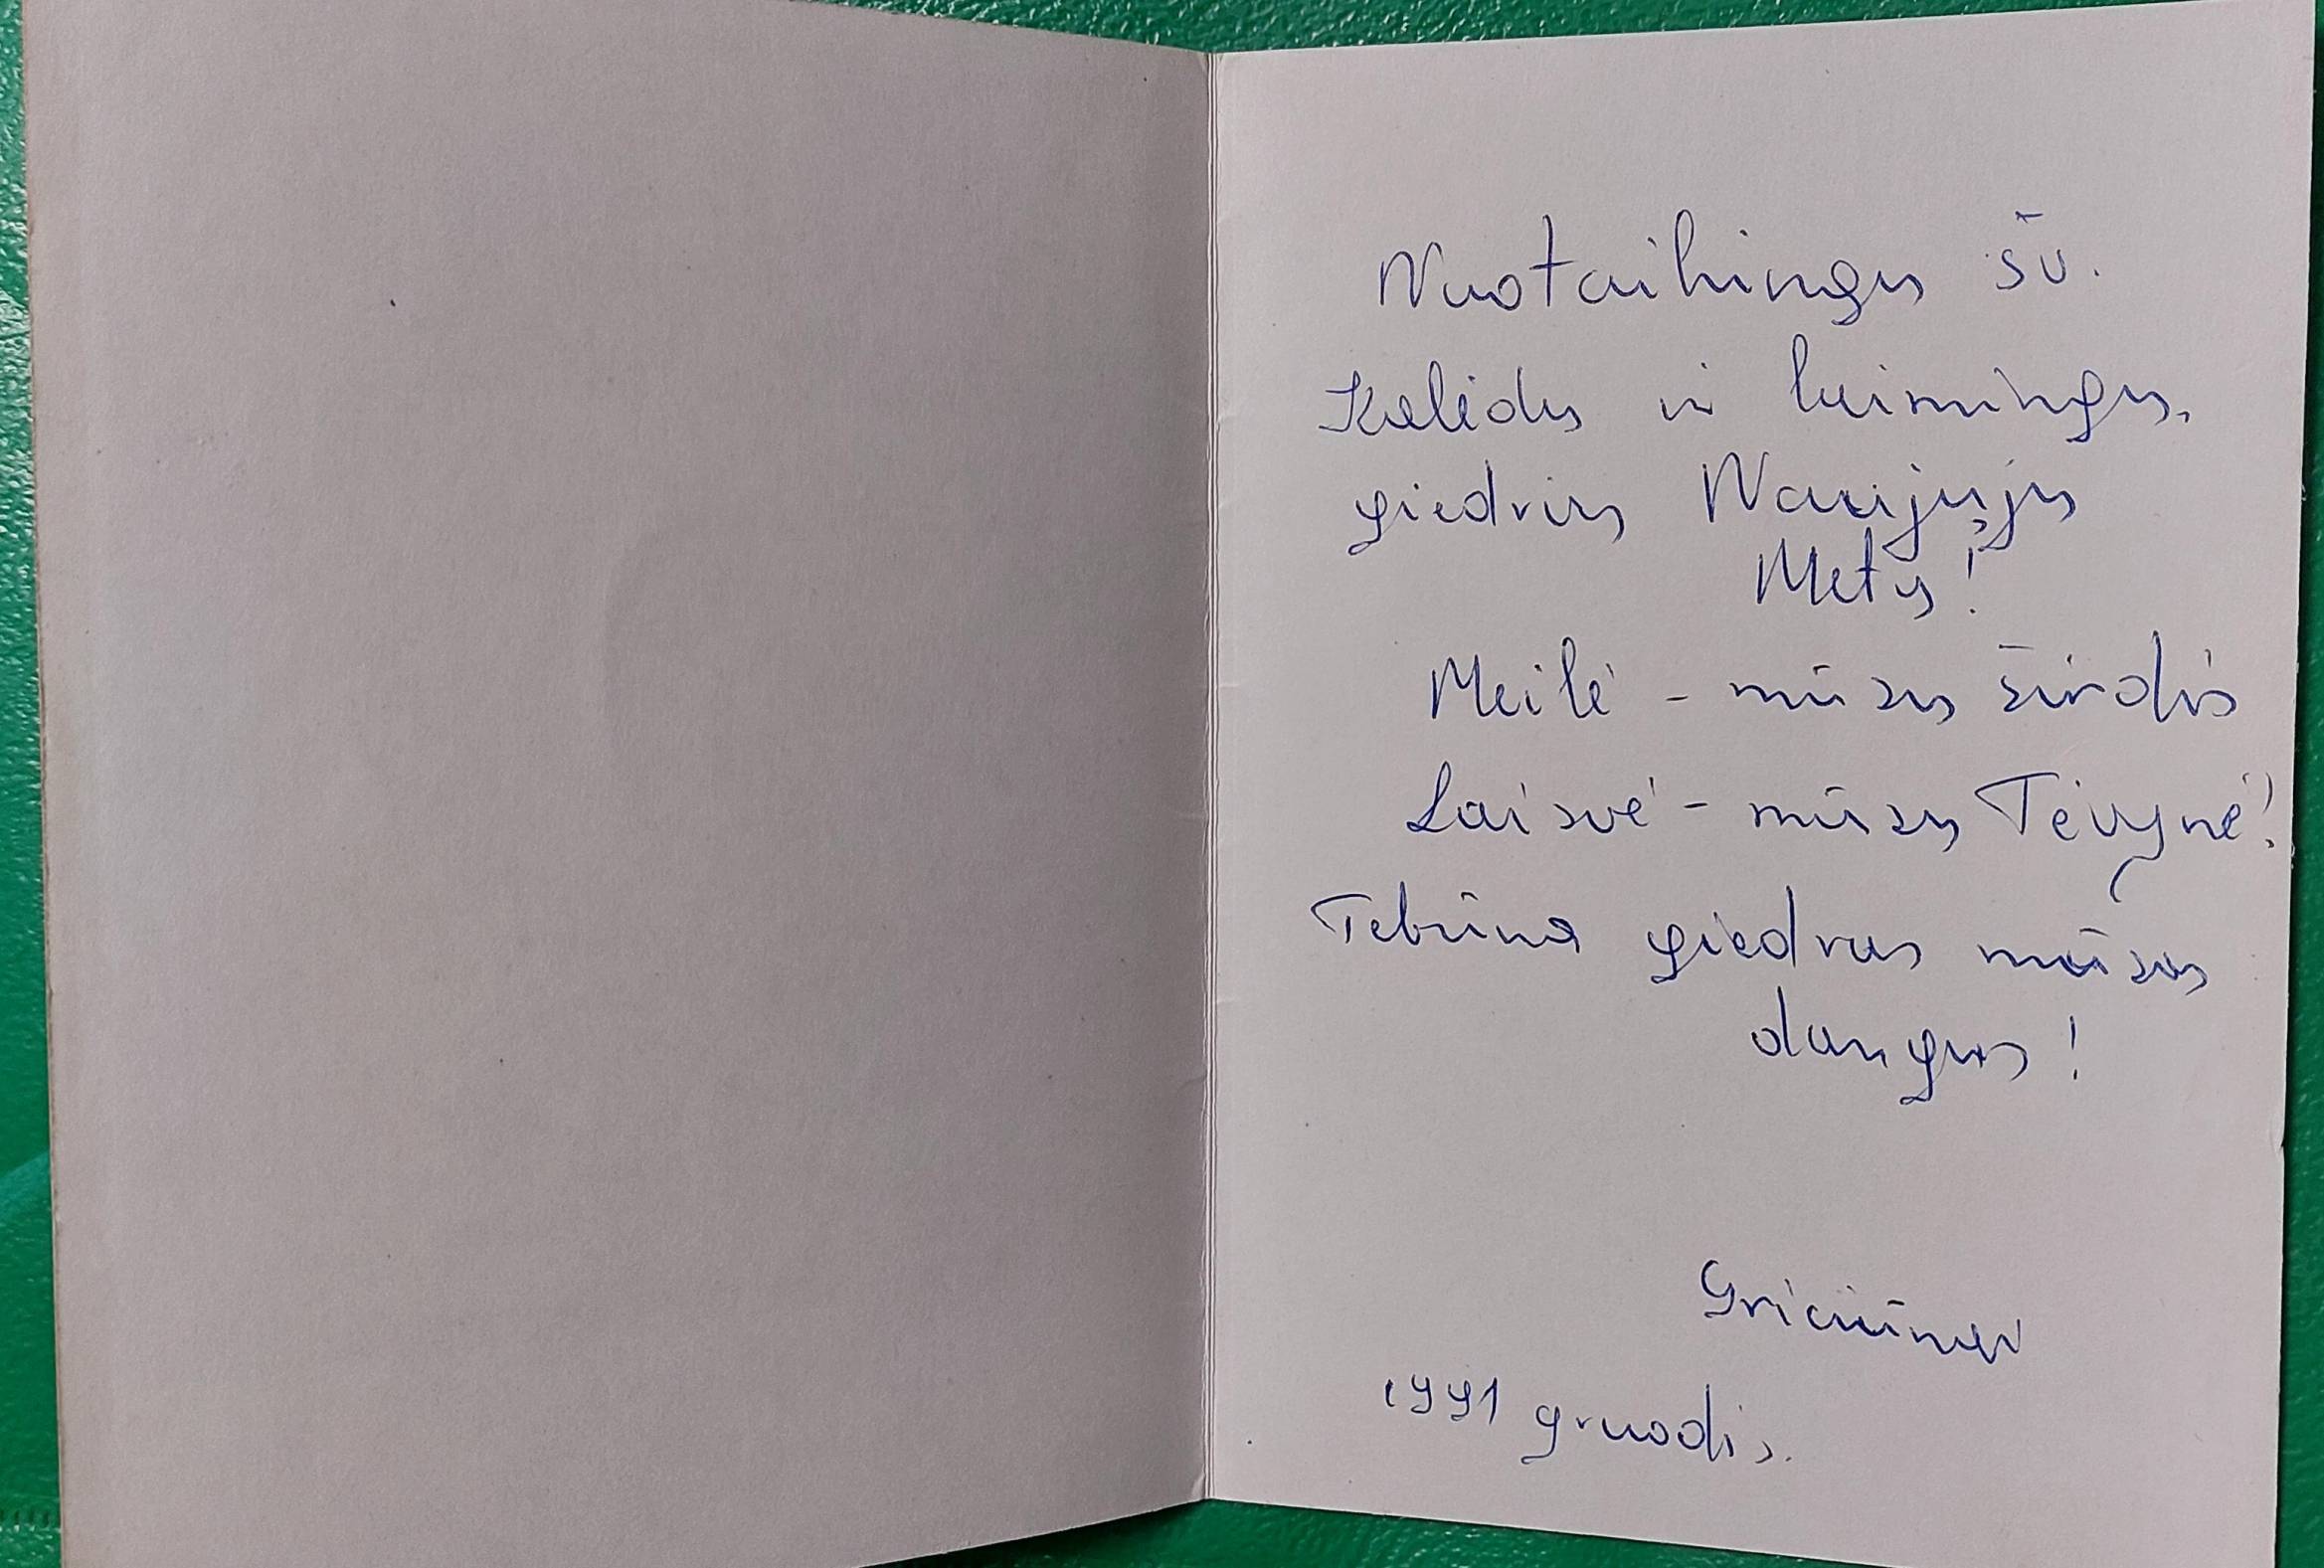 Nuotaikingų šv.
Kalėdų ir laimingų,
giedrių Naujųjų
Metų!
Meilė - mūsų širdis
Laisvė - mūsų Tėvynė!
Tebūna giedras mūsų
dangus!
Griciūnai
1991 gruodis.